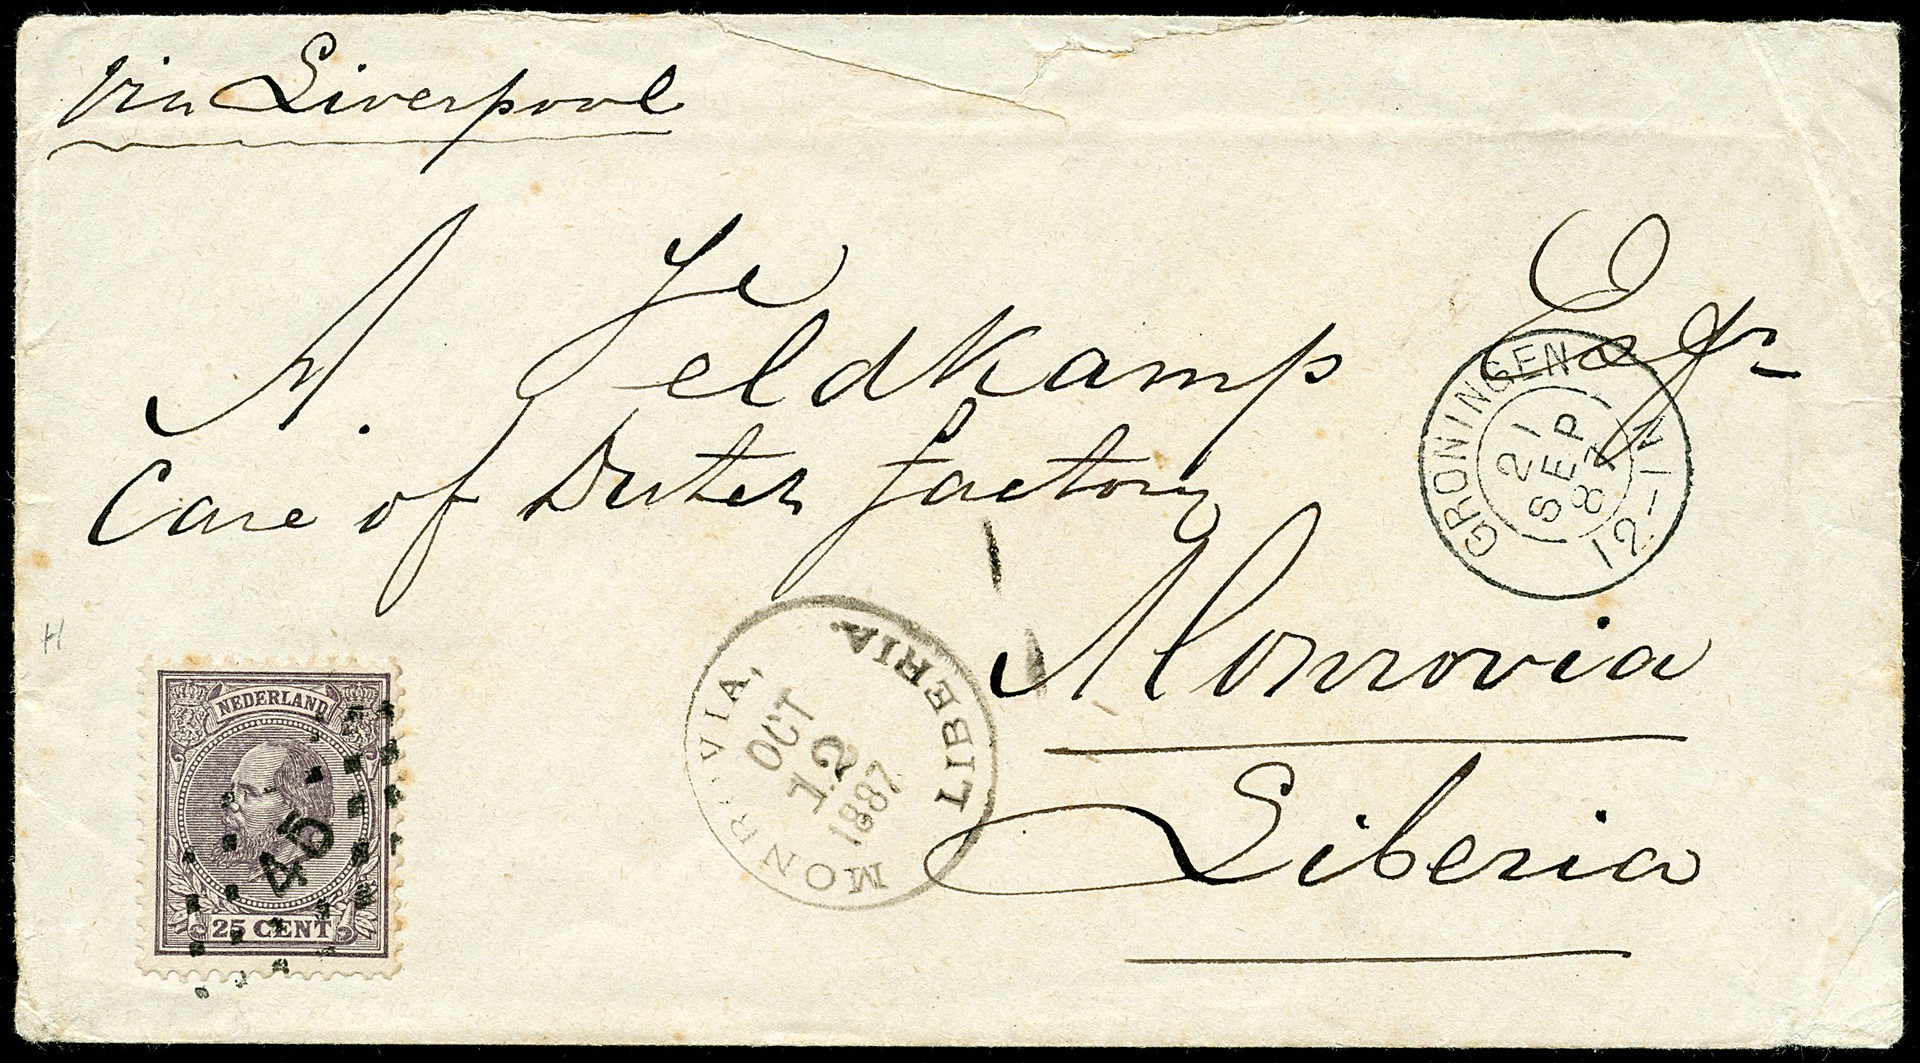 via Liverpool
A. Feldkamp Esqr
Care of Dutch factory
Monrovia
Liberia
GRONINGEN
21
SEP
87
12-1N
MONROVIA,
LIBERIA.
OCT
12
1887
NEDERLAND
45
25 CENT
H